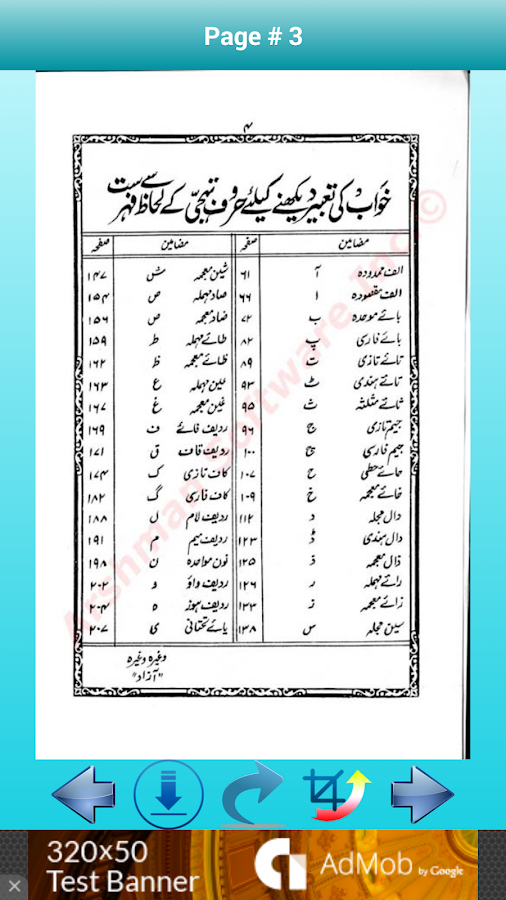 Page # 3
۴
خواب کی تعبیر دیکھنے کیلئے حروف تہجی کے لحاظ سے فہرست
مضامین صفحہ مضامین صفحہ
الف ممدودہ آ ۶۱ شین معجمہ ش ۱۴۷
الف مقصودہ ا ۶۶ صاد مہملہ ص ۱۵۴
بائے موحدہ ب ۷۲ ضاد معجمہ ض ۱۵۶
بائے فارسی پ ۸۲ طائے مہملہ ط ۱۵۹
تائے تازی ت ۸۹ ظائے معجمہ ظ ۱۶۲
تائے ہندی ٹ ۹۳ عین مہملہ ع ۱۶۳
ثائے مثلثہ ث ۹۵ غین معجمہ غ ۱۶۷
جیم تازی ج ۹۶ ردیف فائے ف ۱۶۹
جیم فارسی چ ۱۰۰ ردیف قاف ق ۱۷۱
حائے حطی ح ۱۰۷ کاف تازی ک ۱۷۴
خائے معجمہ خ ۱۰۹ کاف فارسی گ ۱۸۲
دال مہملہ د ۱۱۲ ردیف لام ل ۱۸۸
دال ہندی ڈ ۱۲۳ ردیف میم م ۱۹۱
ذال معجمہ ذ ۱۲۵ نون مواحدہ ن ۱۹۸
رائے مہملہ ر ۱۲۶ ردیف واؤ و ۲۰۲
زائے معجمہ ز ۱۳۳ ردیف ہوز ہ ۲۰۴
سین مہملہ س ۱۳۸ یائے تحتانی ی ۲۰۷
وغیرہ وغیرہ
"آزاد"
Arshman Software Inc. ©
320×50
Test Banner
AdMob by Google